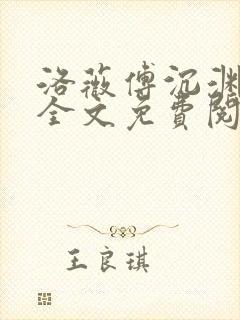 洛薇傅沉渊
全文免費閱
王良琪